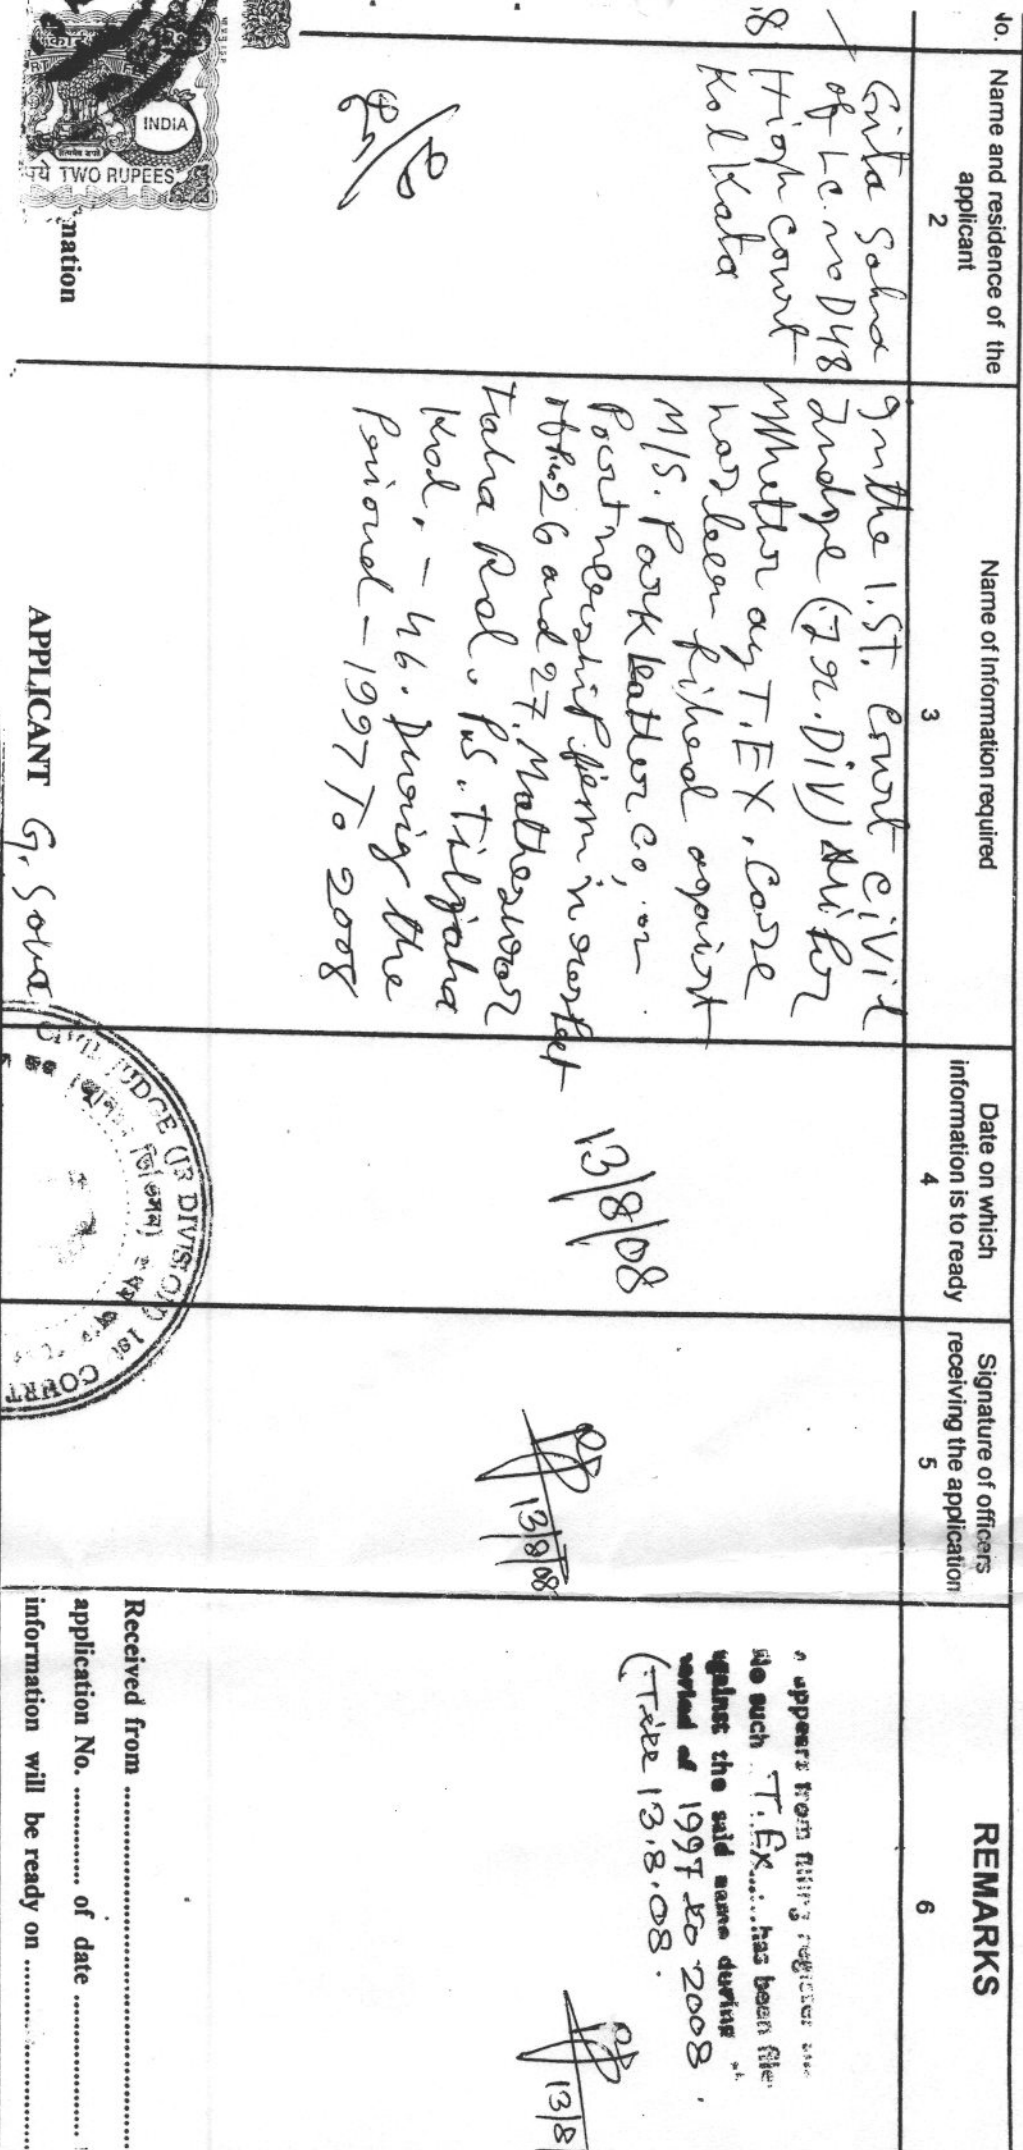 No.
Name and residence of the
applicant
2
Name of Information required
3
Date on which
information is to ready
4
Signature of officers
receiving the application
5
REMARKS
6
Gita Saha
of Lc. no D48
High Court
Kolkata
In the 1.ST. Court Civil
Judge (Jr. DIV) Ali for
Whether any T.EX. Case
has been filed against
M/S. Park Leather Co, or
Partnership firm in respect
of 26 and 27, Matheswar
tala Rd. P.S. Tiljala
Kol, - 46. During the
Period - 1997 To 2008
13/8/08
13/8/08
appears from filling register
No such T.Ex. has been file
against the said name during
period of 1997 to 2008.
(Till 13.8.08.
13/8
INDIA
TWO RUPEES
mation
APPLICANT G. Saha
CIVIL JUDGE (JR DIVISION) 1st COURT
Received from
application No. of date
information will be ready on